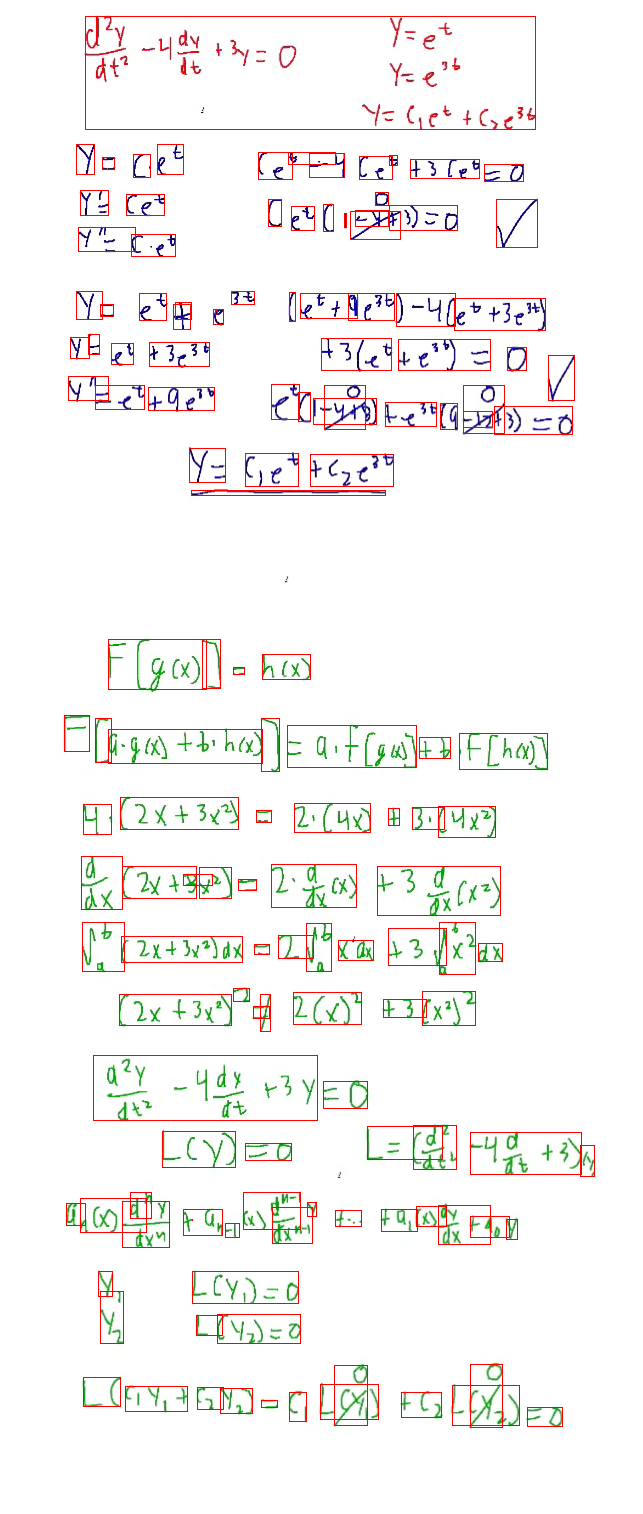 d²y/dt² - 4 dy/dt + 3y = 0    y = e^t
y = e^3t
y = c₁e^t + c₂e^3t
y = Ce^t    Ce^t - 4 Ce^t + 3Ce^t = 0
y' = Ce^t    Ce^t (1 - 4 + 3) = 0 ✓
0
y'' = C·e^t
y = e^t + e^3t    (e^t + 9e^3t) - 4(e^t + 3e^3t)
y' = e^t + 3e^3t    + 3(e^t + e^3t) = 0 ✓
y'' = e^t + 9e^3t    e^t (1 - 4 + 3) + e^3t (9 - 12 + 3) = 0
0    0
y = c₁e^t + c₂e^3t
F[g(x)] = h(x)
F[a·g(x) + b·h(x)] = a·F[g(x)] + b·F[h(x)]
4·(2x + 3x²) = 2·(4x) + 3·(4x²)
d/dx (2x + 3x²) = 2·d/dx (x) + 3 d/dx (x²)
∫_a^b (2x + 3x²) dx = 2 ∫_a^b x dx + 3 ∫_a^b x² dx
(2x + 3x²)² ≠ 2(x)² + 3(x²)²
d²y/dt² - 4 dx/dt + 3y = 0
L(y) = 0    L = (d²/dt² - 4 d/dt + 3)(y
aₙ(x) dⁿy/dxⁿ + aₙ₋₁(x) dⁿ⁻¹y/dxⁿ⁻¹ + ... + a₁(x) dy/dx + a₀y
y₁    L(y₁) = 0
y₂    L(y₂) = 0
0    0
L(c₁y₁ + c₂y₂) = c₁ L(y₁) + c₂ L(y₂) = 0